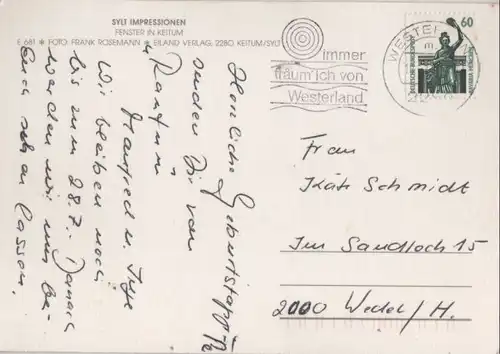 SYLT IMPRESSIONEN
FENSTER IN KEITUM
E 681 * FOTO: FRANK ROSEMANN * EILAND VERLAG, 2280 KEITUM/SYLT
Immer
träum'ich von
Westerland
WESTERLAND
60
DEUTSCHE BUNDESPOST
BAVARIA MÜNCHEN
Herzliche Geburtstags
senden Dir von
Kantum
Manfred u. Inge
Wir bleiben noch
bis zum 28.7. Danach
werden wir uns be-
Euch sehen lassen.
Frau
Käte Schmidt
Im Sandloch 15
2000 Wedel/H.